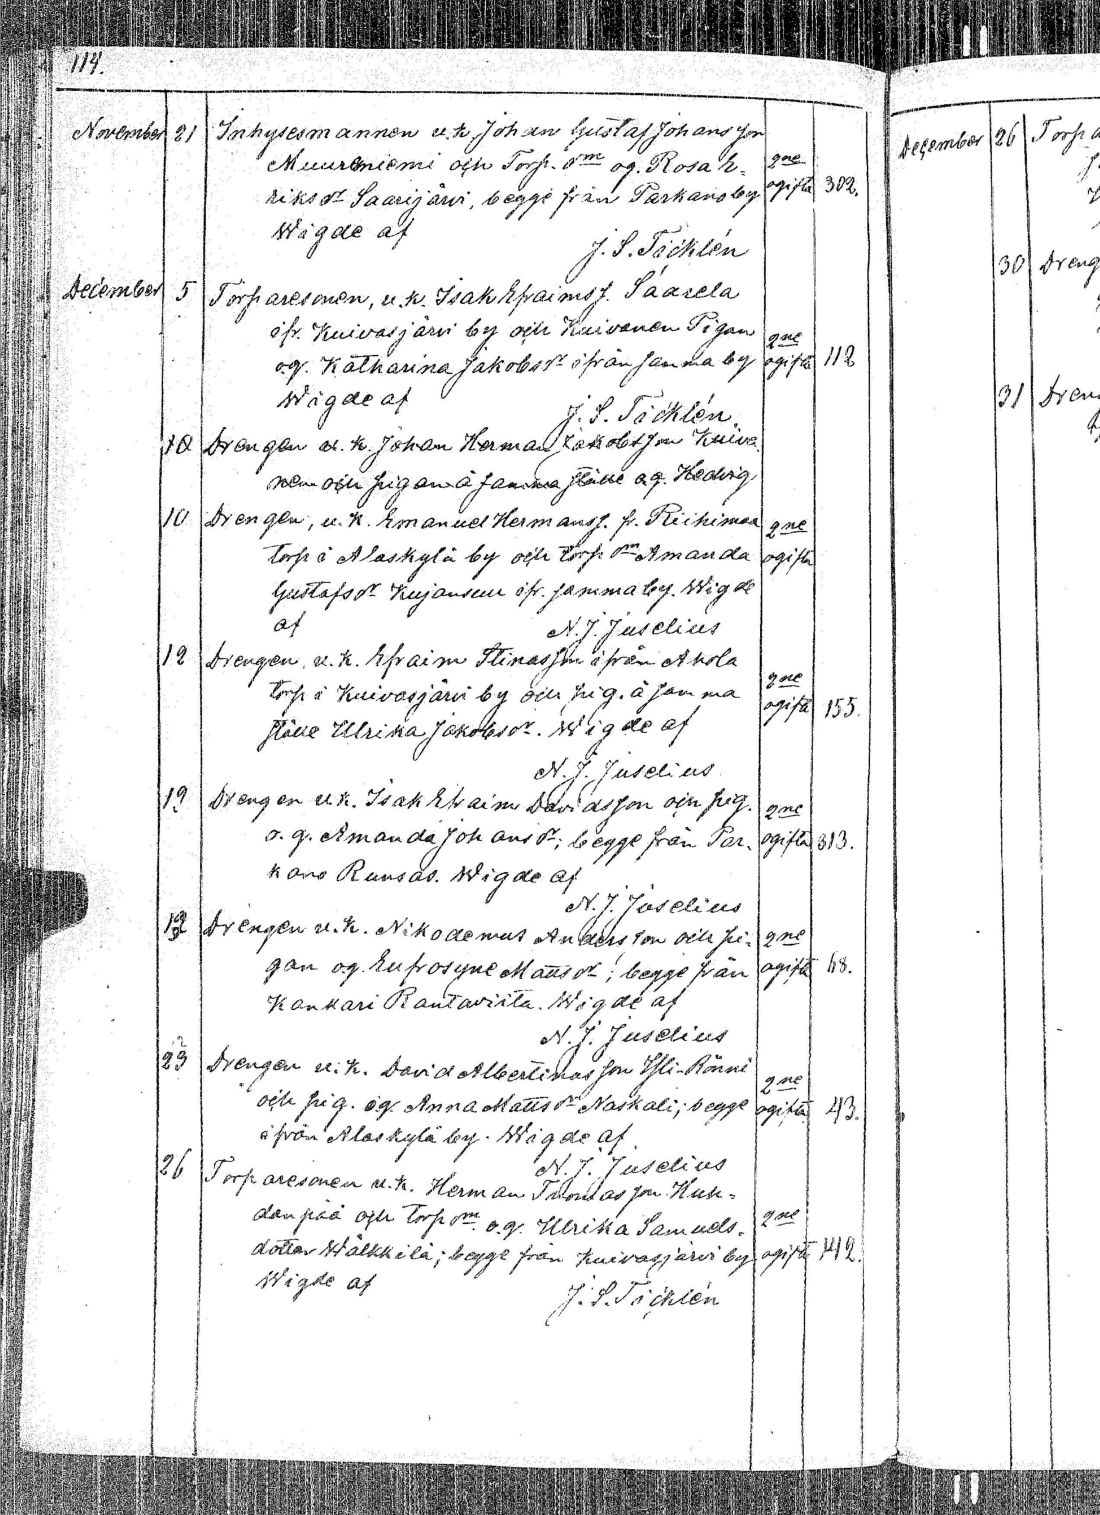 114.
November 21 Inhysesmannen u. k. Johan Gustaf Johansson
Muureniemi och Torp. dm og. Rosa E-
riksdr Saarijärvi, begge från Parkano by
2ne ogifta 302.
Wigde af
J. S. Täcklén
December 5 Torparesonen, u. k. Isak Efraimss. Saarela
ifr. Kuivasjärvi by och Kuivanen Pigan
o.g. Katharina Jakobsdr ifrån samma by
2ne ogifta 112
Wigde af
J. S. Täcklén
10 Drengen u. k. Johan Herman Jakobsson Kuiva-
nen och pigan å samma ställe o.g. Hedvig
10 Drengen, u. k. Emanuel Hermanss. fr. Riihimaa
torp i Alaskylä by och torp dm Amanda
Gustafsdr Kujansuu ifr. samma by. Wigde
2ne ogifta
af
N. J. Juselius
12 Drengen, u. k. Efraim Stinasson ifrån Ahola
torp i Kuivasjärvi by och pig. å samma
ställe Ulrika Jakobsdr. Wigde af
2ne ogifta 155.
N. J. Juselius
Drengen u. k. Isak Efraim Davidsson och pig.
o. g. Amanda Johansdr; begge från Par-
kano Runsas. Wigde af
2ne ogifta 313.
N. J. Juselius
Drengen u. k. Nikodemus Andersson och pi-
gan og. Eufrosyne Mattsdr; begge från
Kankari Rantaviita. Wigde af
2ne ogifta 68.
N. J. Juselius
23 Drengen u. k. David Albertinasson Yli-Rönni
och pig. og. Anna Mattsdr Naskali; begge
ifrån Alaskylä by. Wigde af
2ne ogifta 43.
N. J. Juselius
26 Torparesonen u. k. Herman Tuomasson Kuh-
danpää och torp dm. o.g. Ulrika Samuels-
dotter Wälkkilä; begge från Kuivasjärvi by
2ne ogifta 142.
Wigde af
J. S. Täcklén
December 26 Torpa
30 Dreng
31 Dren